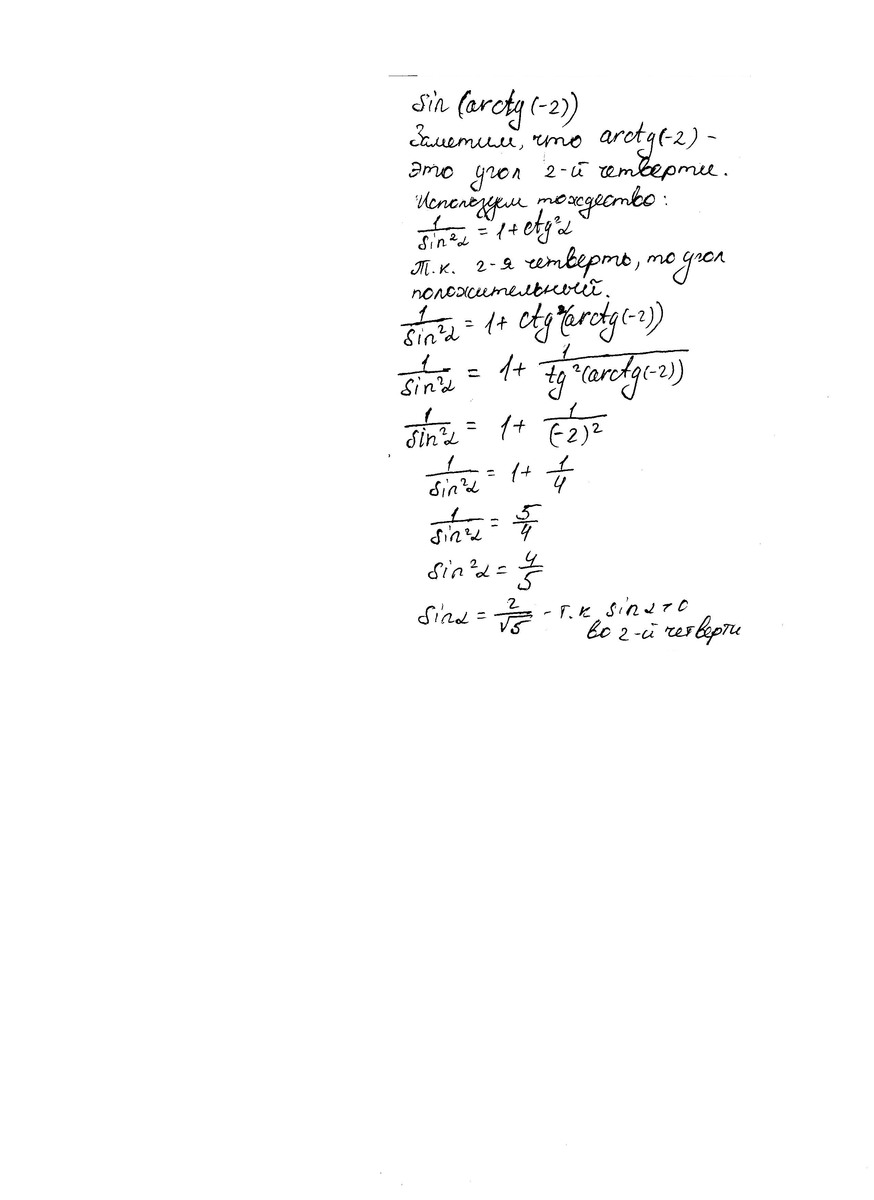 sin (arctg(-2))
Заметим, что arctg(-2) -
это угол 2-й четверти.
Используем тождество:
1/sin²α = 1+ctg²α
Т.к. 2-я четверть, то угол
положительный.
1/sin²α = 1+ ctg²(arctg(-2))
1/sin²α = 1+ 1/tg²(arctg(-2))
1/sin²α = 1+ 1/(-2)²
1/sin²α = 1+ 1/4
1/sin²α = 5/4
sin²α = 4/5
sinα = 2/√5 - т.к sinα>0
во 2-й четверти